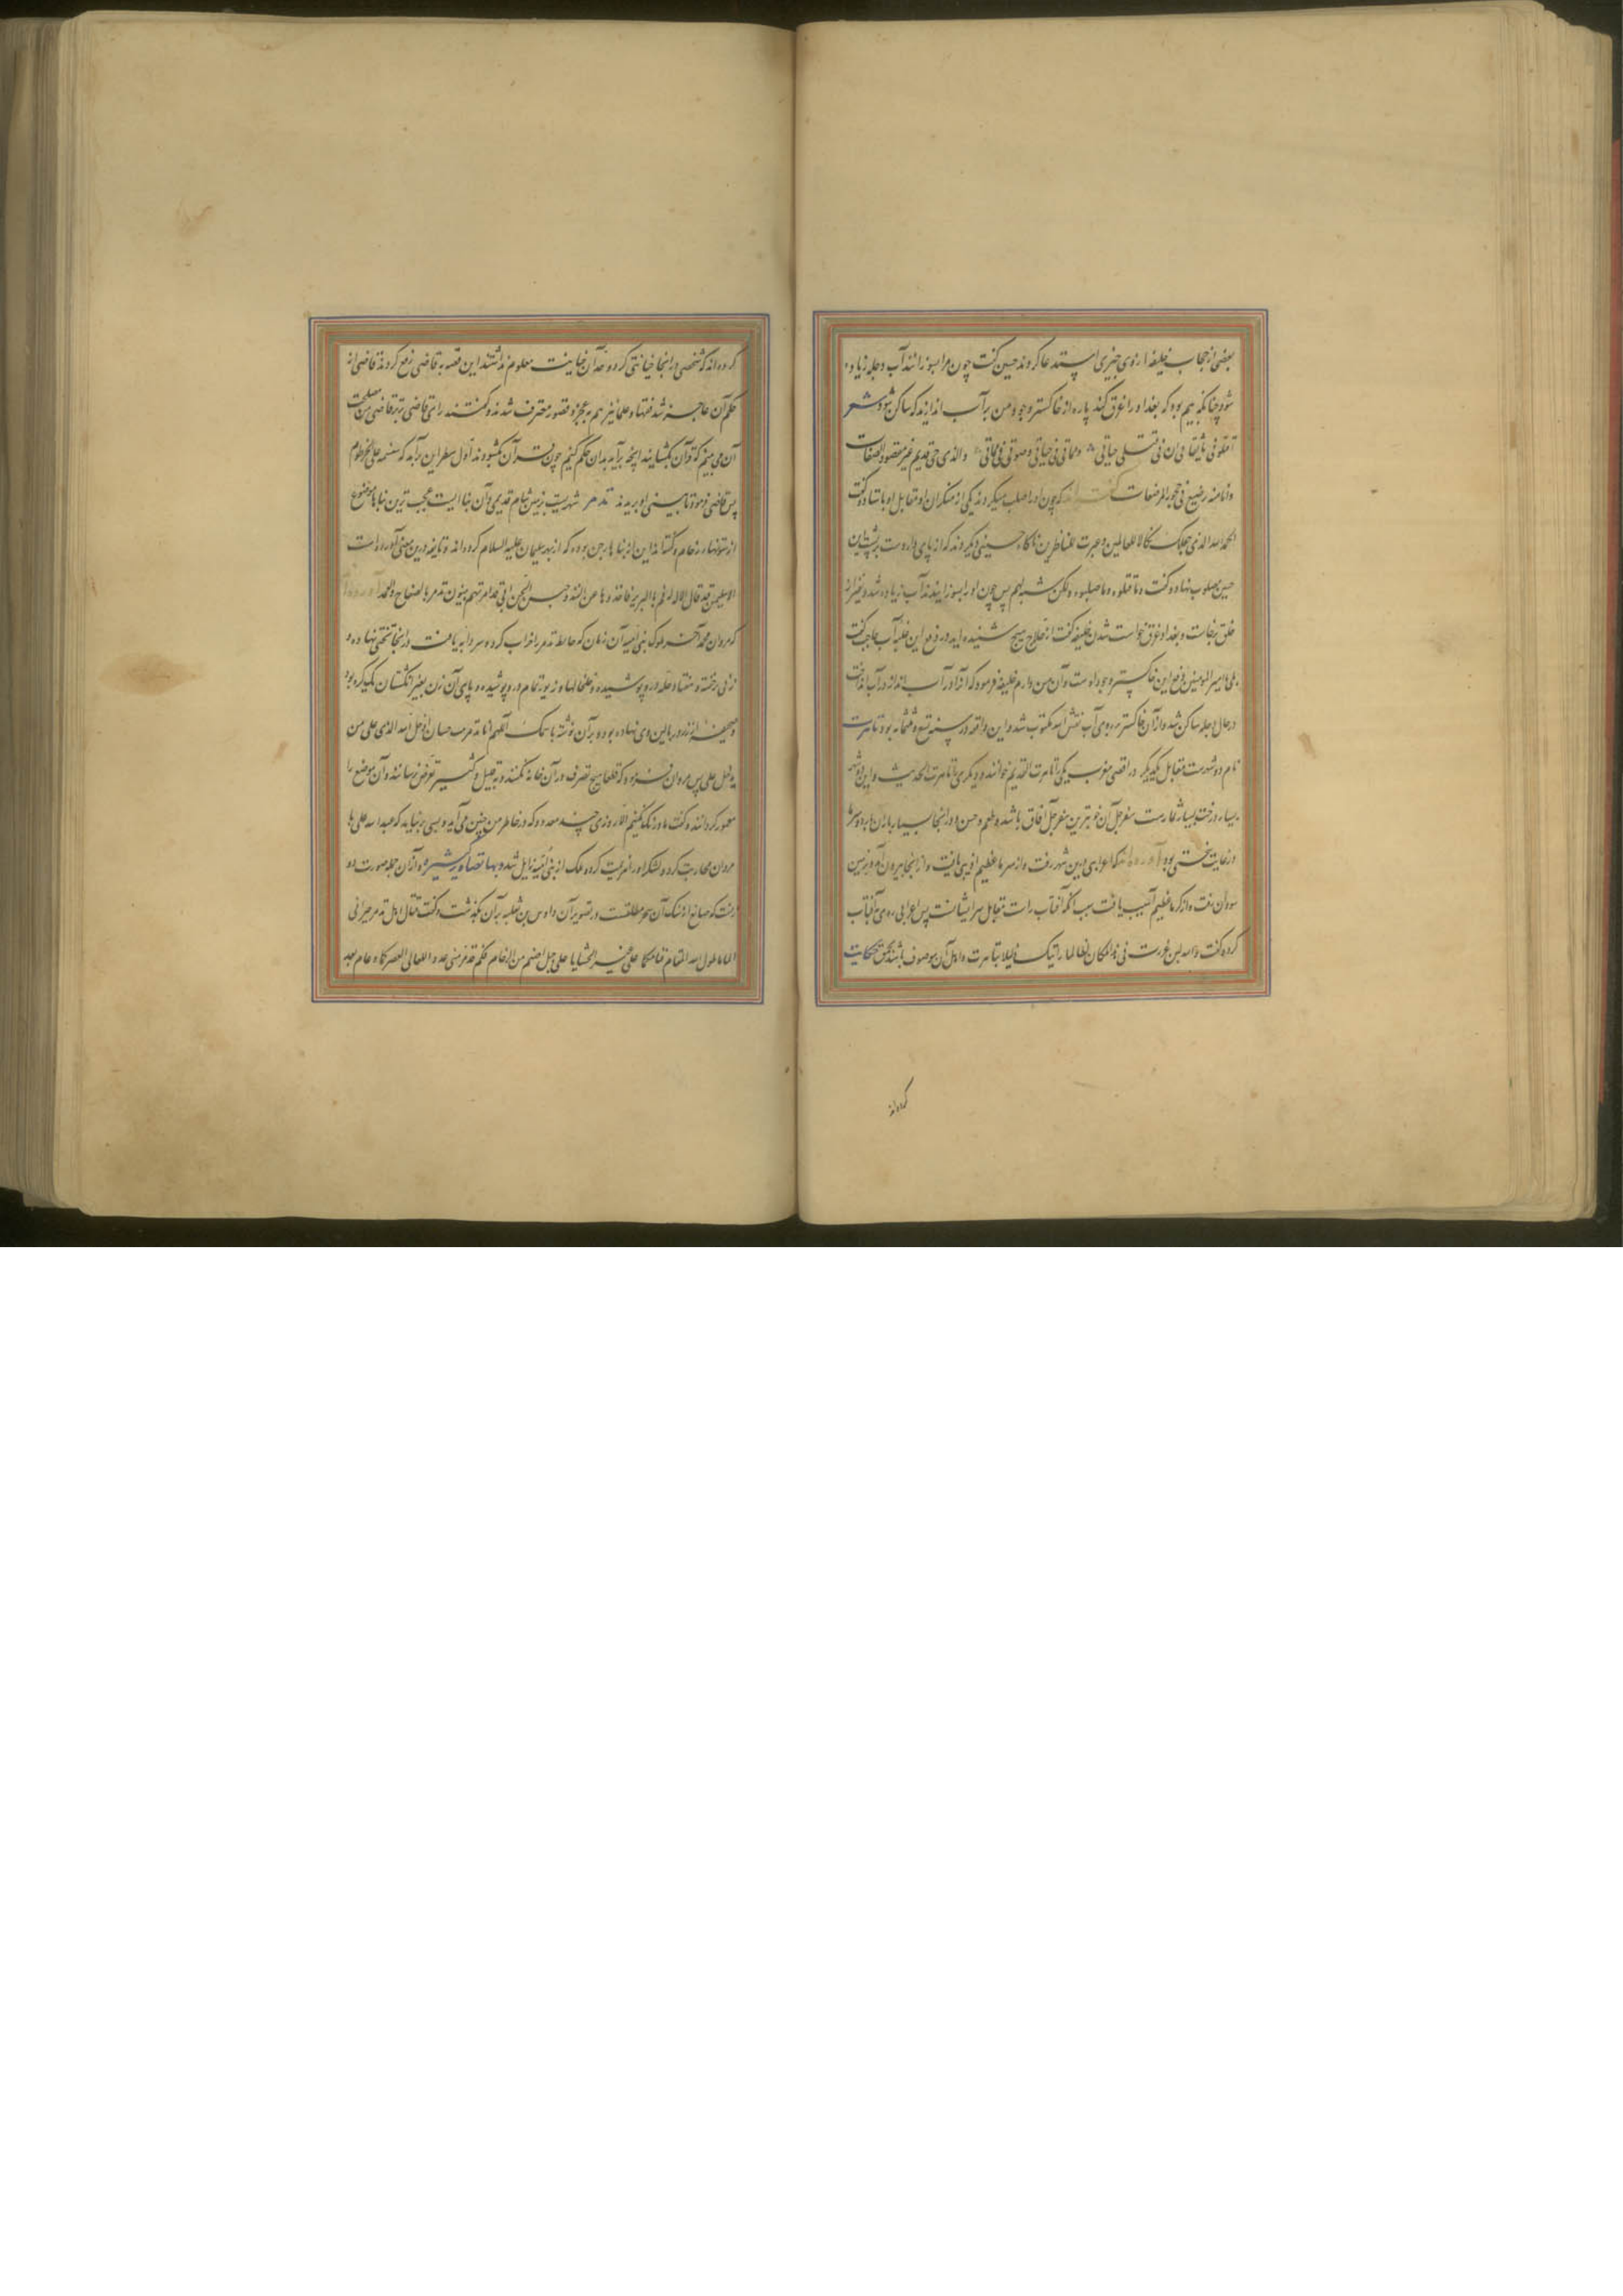 بعضی از حجاب خلیفه از وی چیزی استدعا کردند حسین گفت چون مرا بسوزانند آب دجله زیاده
شود چنانکه بیم بود که بغداد را غرق کند پاره از خاکستر وجود من بر آب اندازند که ساکن شود شعر
اقتلونی یا ثقاتی ان فی قتلی حیاتی و مماتی فی حیاتی و حیوتی فی مماتی والذی حی قدیم غیر مفقود الصفات
وانا منه رضیع فی حجور المرضعات که چون او را صلب میکردند یکی از منکران او مقابل او باستاد و گفت
الحمد لله الذی جعلک نکالا للعالمین و عبرت للناظرین ناگاه حسینی دیگر دیدند که از پای دار دست بر پشت این
حسین مصلوب نهاد و گفت و ما قتلوه و ما صلبوه ولکن شبه لهم پس چون او را بسوزانیدند آب زیاده شد و نفیر از
خلق برخاست و بغداد غرق خواست شدن خلیفه گفت از حلاج هیچ شنیده اید در دفع این غلبه آب حاجب گفت
بلی یا امیر المومنین دفع این خاکستر وجود اوست و آن من دارم خلیفه فرمود که آنرا در آب انداز در آب انداخت
در حال دجله ساکن شد و از آن خاکستر بر روی آب نقش الله مکتوب شد و این واقعه در سنه تسع و ثلثمائه بود تاهرت
نام دو شهرست مقابل یکدیگر در اقصی مغرب یکی را تاهرت القدیم خوانند و دیگری را تاهرت الحدیث و این شهر
بسیار درخت بسیار ثمارست سفرجل آن خوبترین سفرجل آفاق باشد و طعم و حسن و در انجا بسیار باران بود و سرما
در غایت سختی بود آورده اند که اعرابی درین شهر رفت و از سرما عظیم اذیتی یافت و از انجا بیرون آمد و بزمین
سودان رفت و از گرما عظیم آسیب یافت سبب آنکه آفتاب راست مقابل سر ایشانست پس اعرابی روی بآفتاب
کرده گفت والله لین عززت فی هذا المکان لطالما رایتک ذلیلا بتاهرت و اهل آن موصوف باشند بحمق حکایت
کرده اند
کرده اند که شخصی در انجا خیانتی کرد و حد آن خیانت معلوم نداشتند این قصه به قاضی رفع کردند قاضی از
حکم آن عاجز شد فقها و علما نیز هم بعجز و قصور معترف شدند و گفتند رای قاضی برتر قاضی گفت مصلحت
آن می بینم که قرآن بگشایند آنچه برآید بدان حکم کنیم چون قرآن بگشودند اول سطر این برآمد که سنسمه علی الخرطوم
پس قاضی فرمود تا بینی او بریدند تدمر شهریست بزمین شام قدیمی و آن بناایست عجیب ترین بناها موضوع
از ستونهای رخام و گفته اند این از بناهای جن بوده که از بهر سلیمان علیه السلام کرده اند و نابغه درین معنی آورده است
الا سلیمن قد قال الاله له قم بالبریة فاحددها عن الفند و خیس الجن انی قد امرتهم یبنون تدمر بالصفاح والعمد آورده اند
که مروان محمد آخر ملوک بنی امیه آن زمان که حایط تدمر را خراب کرد سردابه یافت در انجا تختی نهاده و
زنی خفته و هفتاد حله درو پوشیده و خلخالها و زیور تمام درو پوشیده و پای آن زن بغیر انگشتان یک گز بود
و صحیفه از زر بر بالین وی نهاده بود و بر آن نوشته باسمک اللهم انا تدمر بنت حسان اذل الله الذی علی من
یدخل علی پس مروان فرمود که قطعا هیچ تصرف در آن خانه نکنند و بقلیل و کثیر تعرض نرسانند و آن موضع را
معمور گردانند و گفت ما درنگ نکنیم الا روزی چند معدود که در خاطر من چنین می آید و بسی برنیاید که عبدالله علی با
مروان محاربت کرد و لشکر او را هزیمت کرد و ملک از بنی امیه زایل شد و بها تصاویر کثیره و از آن جمله صورت دو
زنست که صانع از سنگ آن سحر مطلقست و در تصویر آن و اوس بن ثعلبه بر آن بگذشت و گفت